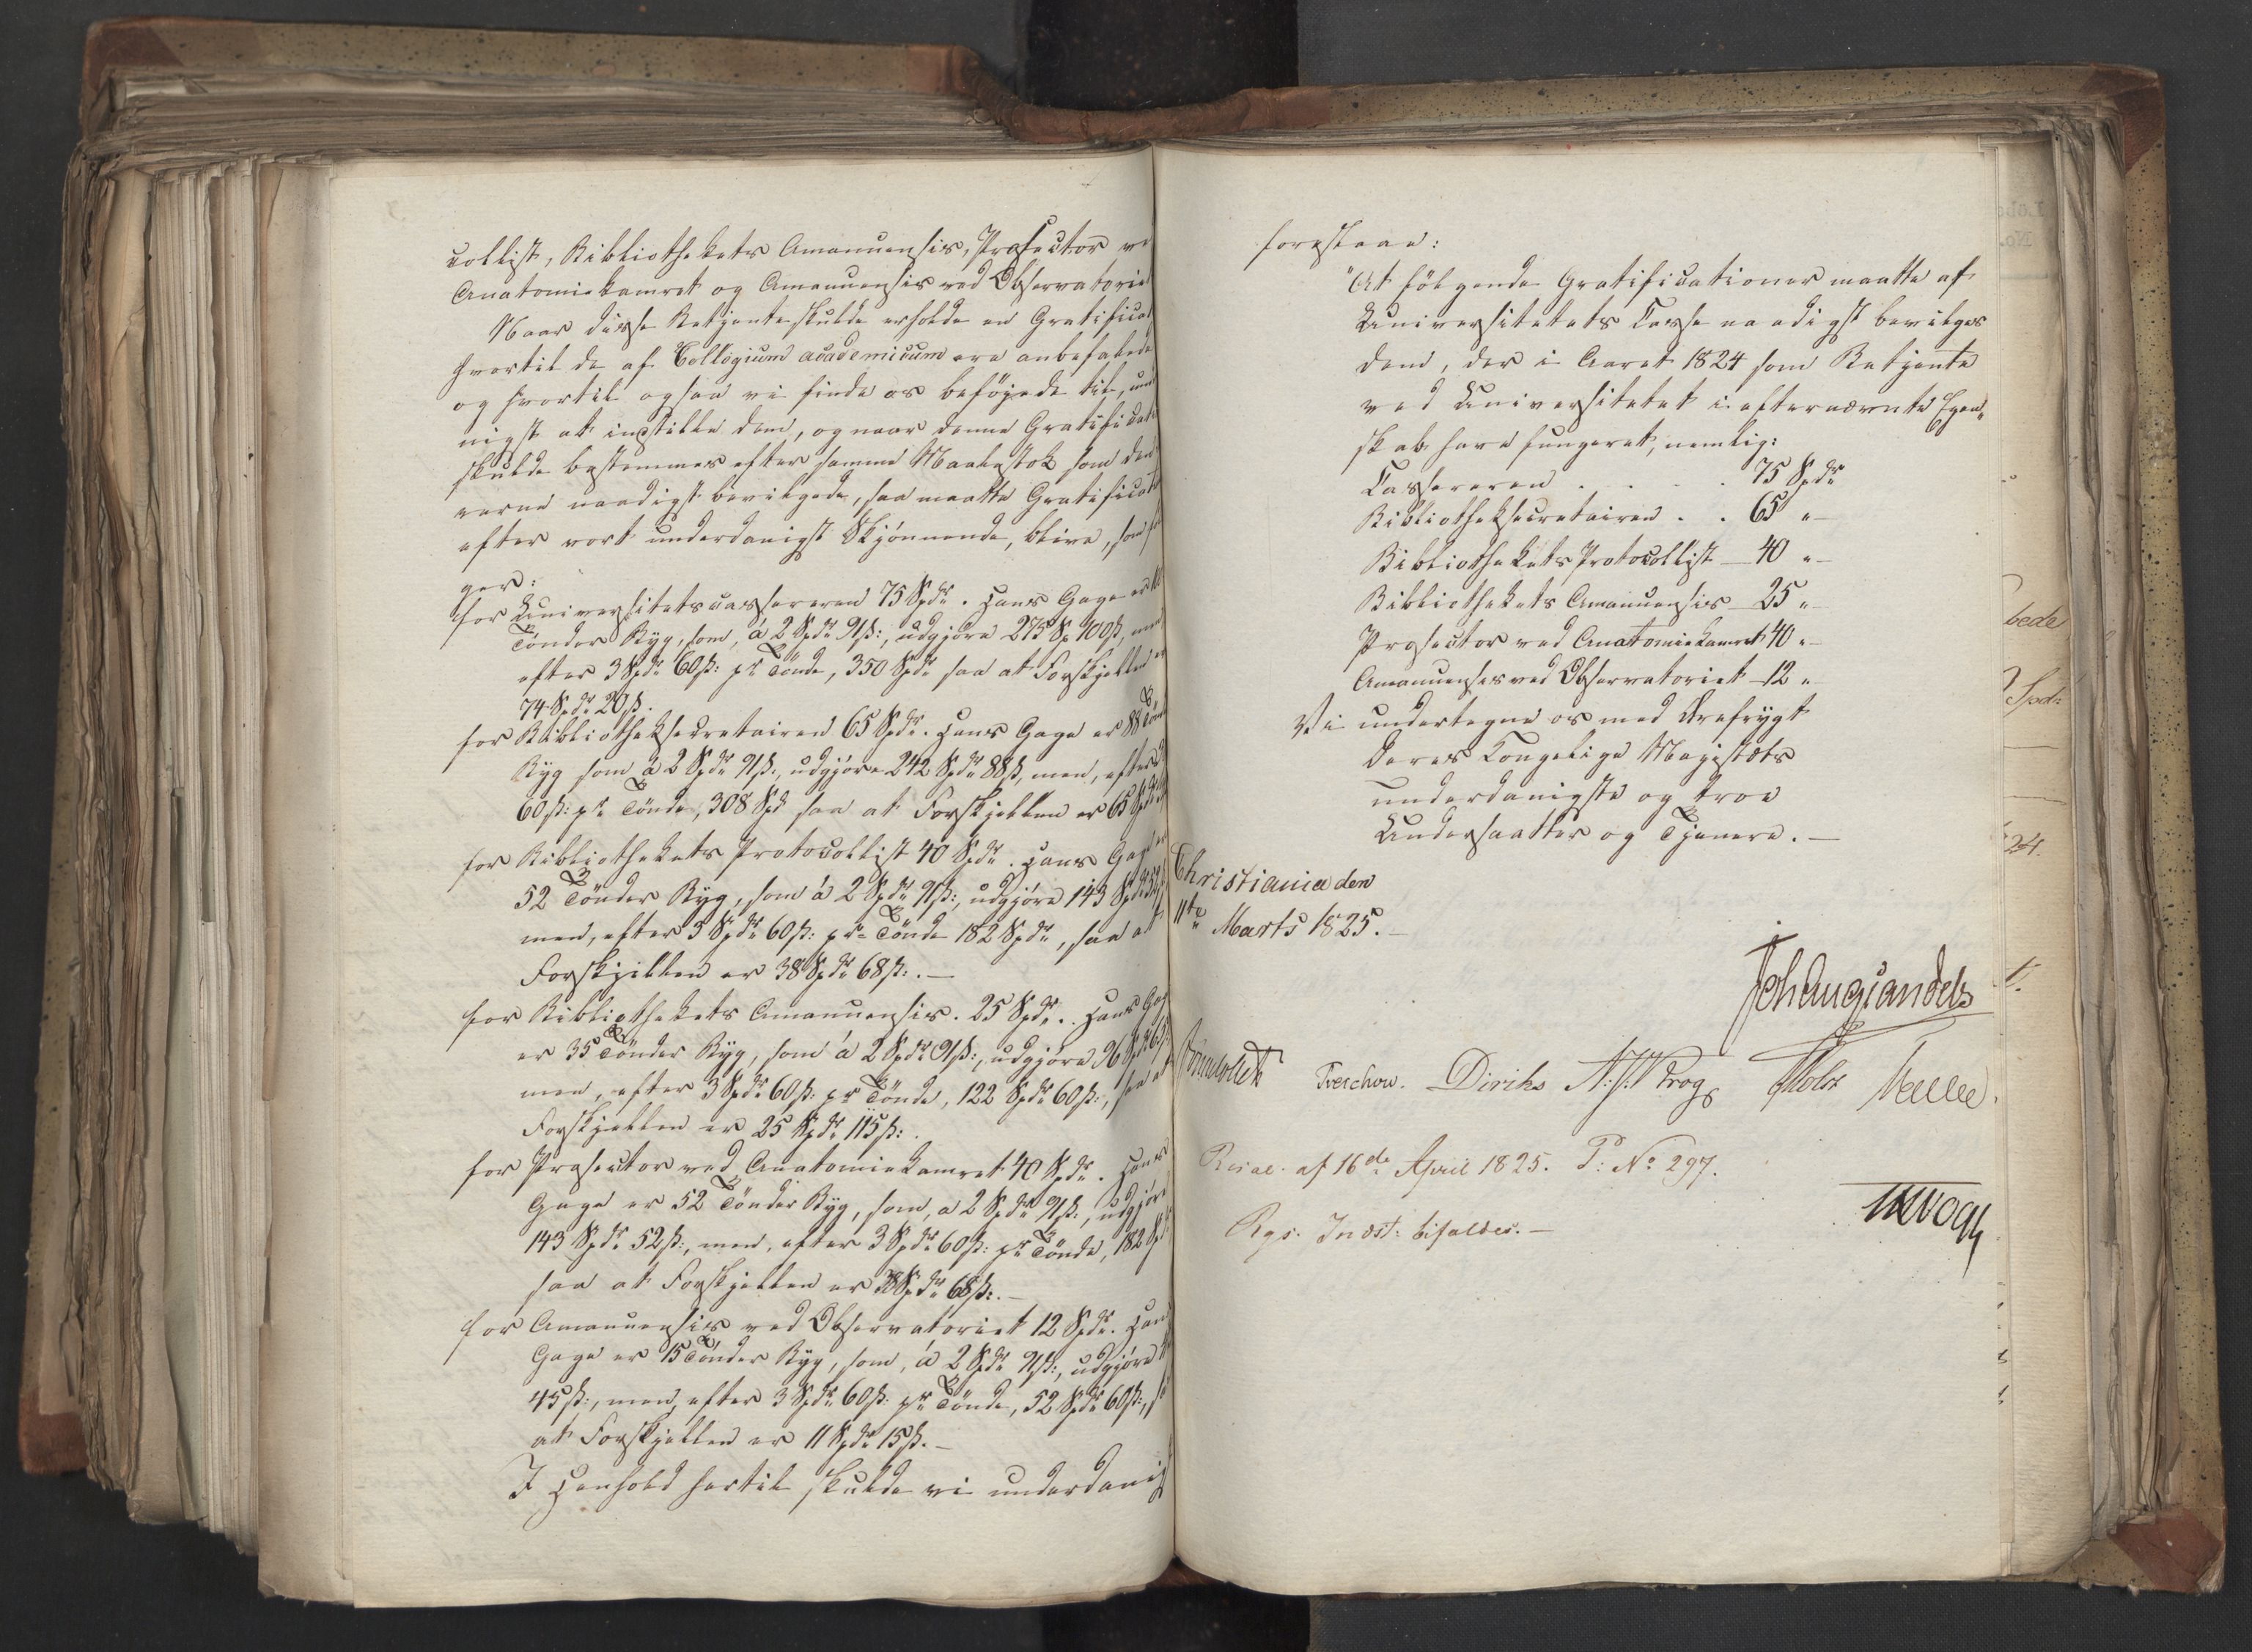 collist, Bibliothekets Amanuensis, Prosector ve
Anatomiekamret og Amanuensis ved Observatoriet
Naar disse Betjente skulde erholde en Gratificat
hvortil de af Collegium academicum ere anbefalede
og hvortil ogsaa vi finde os beföjede til, und
nigst at indstille dem, og naar denne Gratificati
skulde bestemmes efter samme Maalestok som den
naadigst bevilgede, saa maatte Gratificati
efter vort underdanigst Skjönnende, blive, som föl
ger:
for Universitetscassereren 75 Spdr. Hans Gage er 100
Tönder Byg, som, á 2 Spdr 91 ß:, udgjöre 275 Sp 100 ß, men
efter 3 Spdr 60 ß: pr Tönde, 350 Spdr saa at Forskjellen er
74 Spdr 20 ß.
for Bibliotheksecretairen 65 Spdr. Hans Gage er 88 Tönd
Byg som á 2 Spdr 91 ß:, udgjöre 242 Spdr 88 ß, men, efter 3
60 ß: pr Tönde, 308 Spd saa at Forskjellen er 65 Spdr
for Bibliothekets Protocollist 40 Spdr. Hans Gage er
52 Tönder Byg, som á 2 Spdr 91 ß:, udgjöre 143 Spdr 52
men, efter 3 Spdr 60 ß: pr Tönde 182 Spdr, saa at
Forskjellen er 38 Spdr 68 ß:. —
for Bibliothekets Amanuensis. 25 Spdr. Hans Gag
er 35 Tönder Byg, som á 2 Spdr 91 ß:, udgjöre 96 Spdr 65 ß
men, efter 3 Spdr 60 ß: pr Tönde, 122 Spdr 60 ß:, saa at
Forskjellen er 25 Spdr 115 ß:.
for Prosector ved Anatomiekamret 40 Spdr. Hans
Gage er 52 Tönder Byg, som, a 2 Spdr 91 ß:, udgjöre
143 Spdr 52 ß:, men, efter 3 Spdr 60 ß: pr Tönde, 182 Sp
saa at Forskjellen er 38 Spdr 68 ß:. —
for Amanuensis ved Observatoriet 12 Spdr. Hans
Gage er 15 Tönder Byg, som, á 2 Spdr 91 ß:, udgjöre
45 ß:, men, efter 3 Spdr 60 ß: pr Tönde, 52 Spdr 60 ß:,
at Forskjellen er 11 Spdr 15 ß. —
I Henhold hertil skulde vi underdanig
forestaae:
"At fölgende Gratificationer maatte af
Universitetets Casse naadigst bevilges
dem, der i Aaret 1824 som Betjente
ved Universitetet i efternævnte Egen-
skab have fungeret, nemlig:
Cassereren . . . . 75 Spdr
Bibliotheksecretairen . . 65 " —
Bibliothekets Protocollist — 40 " —
Bibliothekets Amanuensis — 25 " —
Prosector ved Anatomiekamret 40 " —
Amanuenses ved Observatoriet — 12 "
Vi undertegne os med Ærefrygt
Deres Kongelige Majestæts
underdanigste og troe
Undersaatter og Tjenere. —
Christiania den
11te Marts 1825. —
Joh Aug Sandels
Treschow. Diriks A. J. Krog Holst
Resol. af 16de April 1825. P: No 297.
Rgs. Indst: bifaldes. —
JHVogt
bede
Spd:
24.